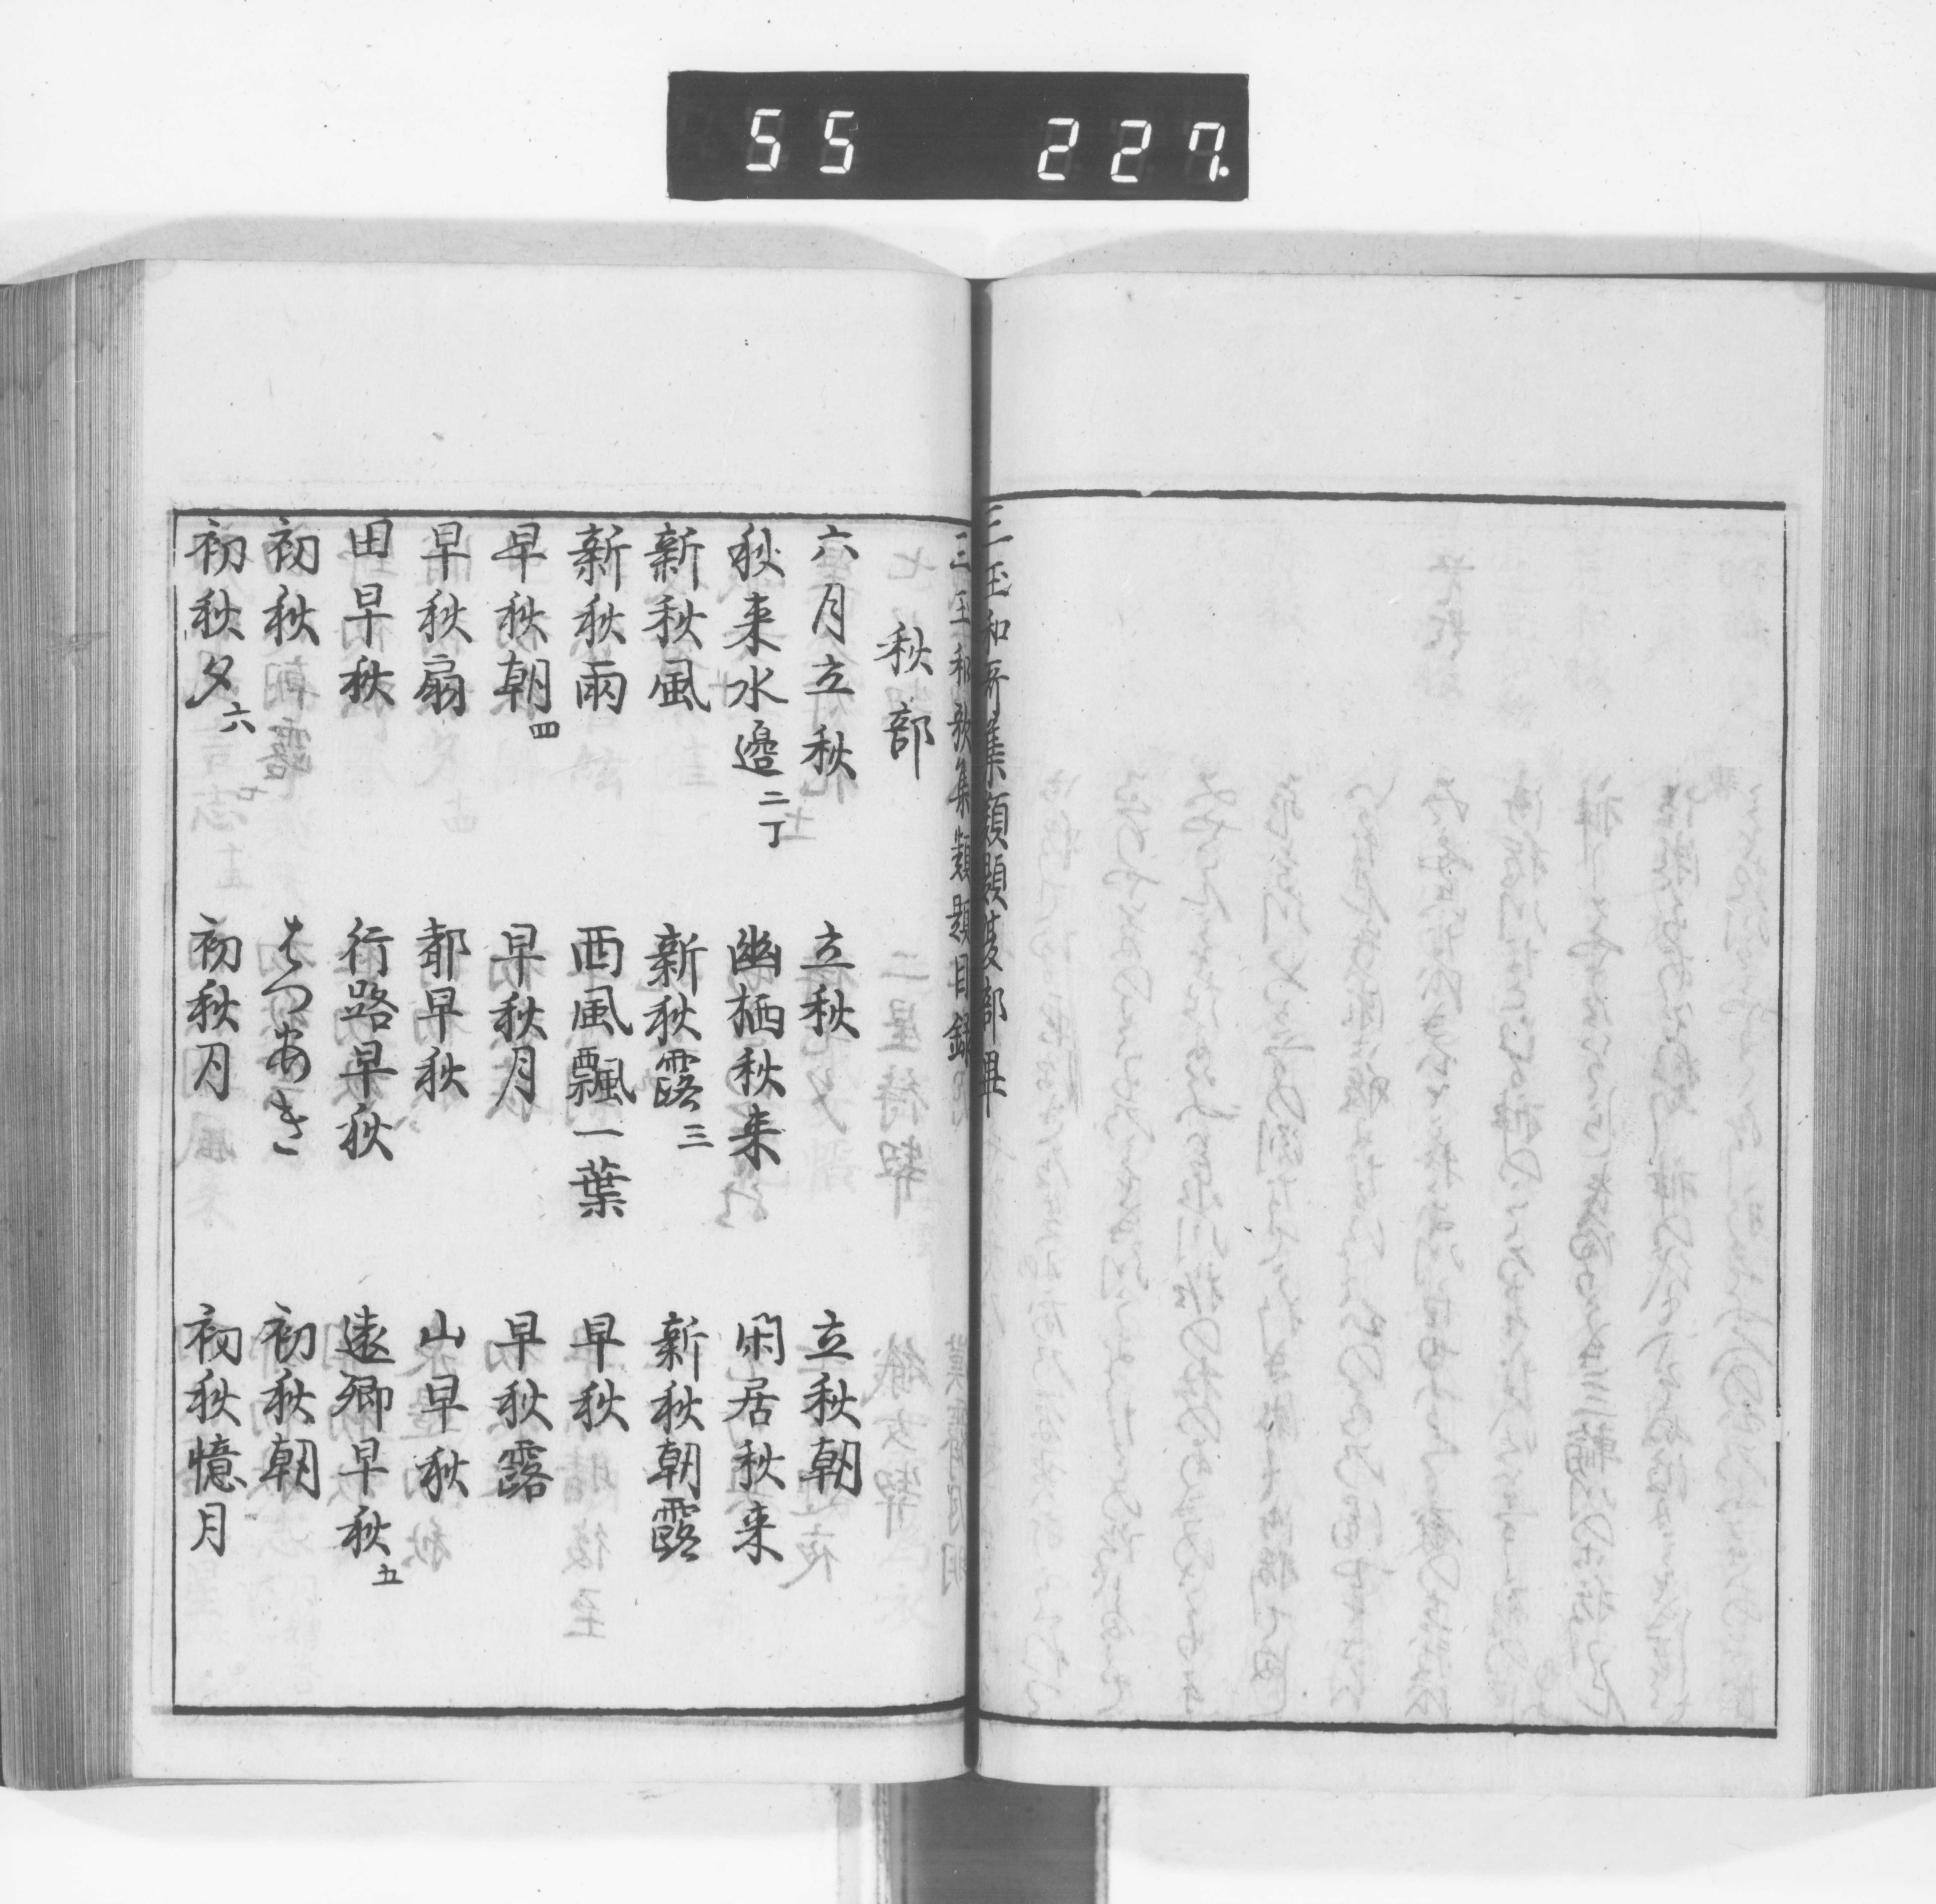 55 227.
三玉和哥集類題夏部畢
三玉和歌集類題目録
秋部
六月立秋 立秋 立秋朝
秋来水邉二丁 幽栖秋来 閑居秋来
新秋風 新秋露三 新秋朝露
新秋雨 西風飄一葉 早秋
早秋朝四 早秋月 早秋露
早秋扇 都早秋 山早秋
田早秋 行路早秋 遠郷早秋五
初秋 はつあき 初秋朝
初秋夕六 初秋月 初秋憶月